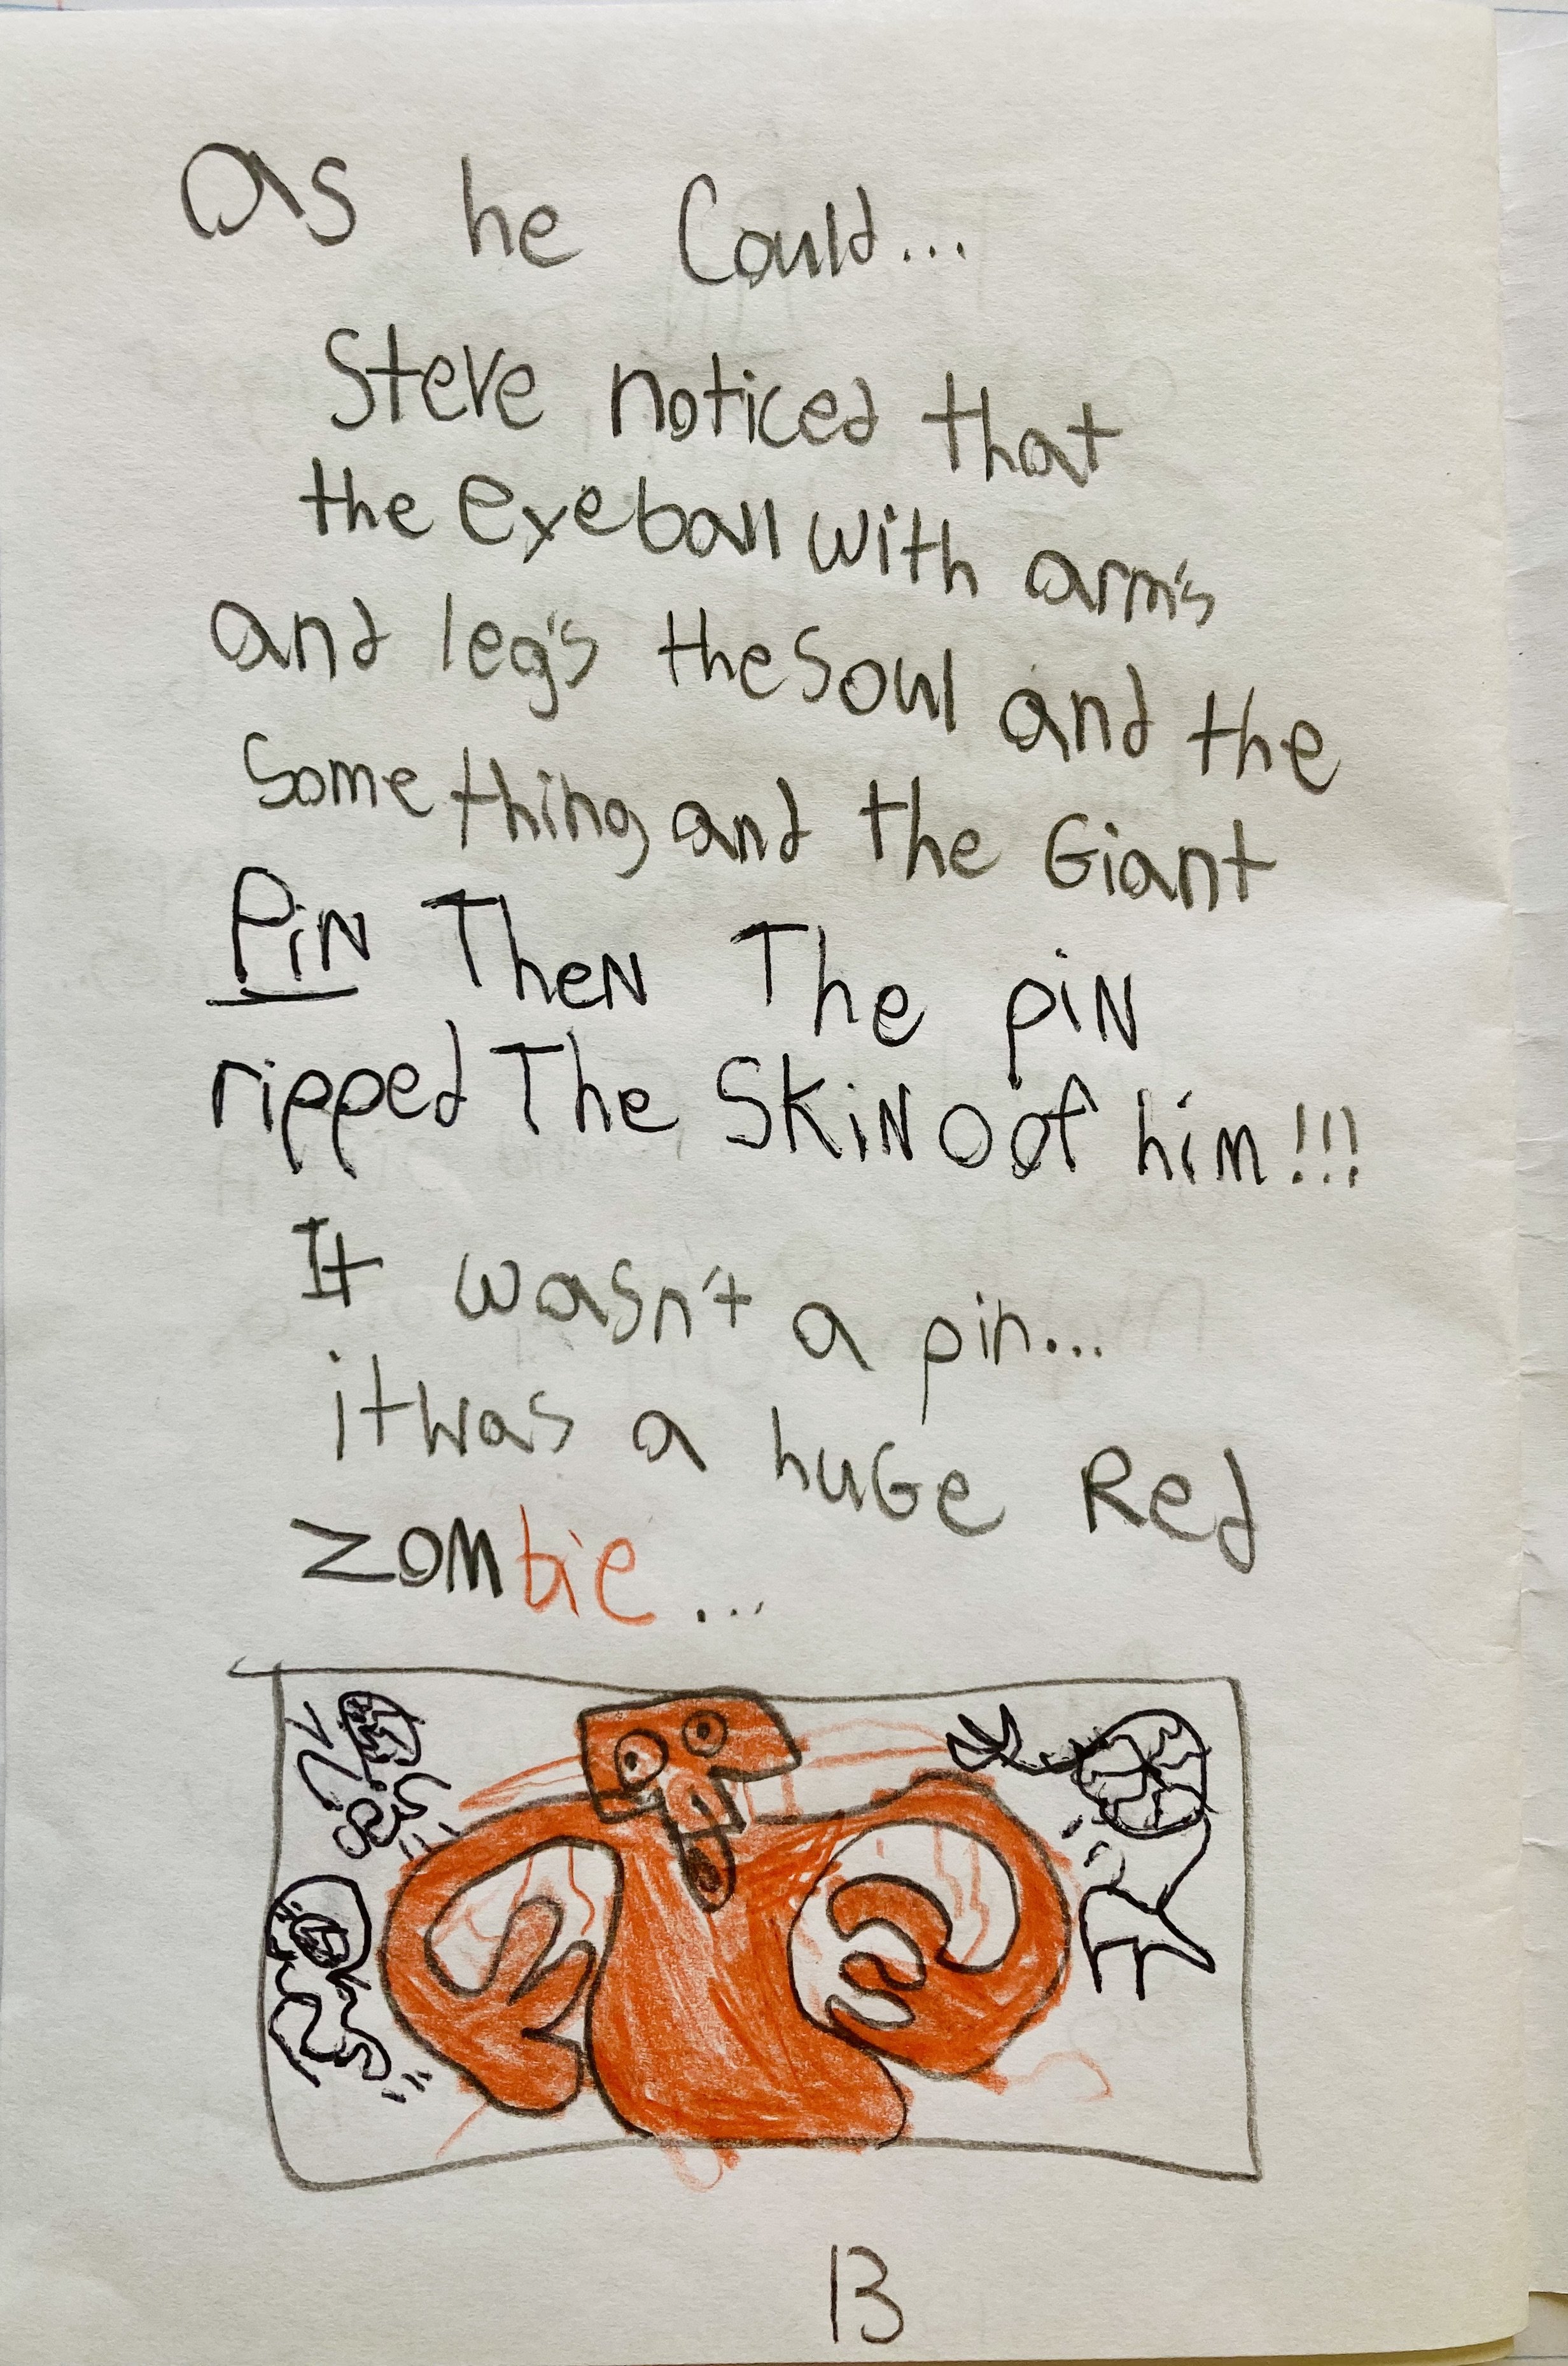 as he Could...
Steve noticed that
the eyeball with arm's
and leg's the soul and the
something and the Giant
PiN TheN The piN
ripped The SKiN oof him!!!
It wasn't a pin...
it was a huGe Red
zombie...
13